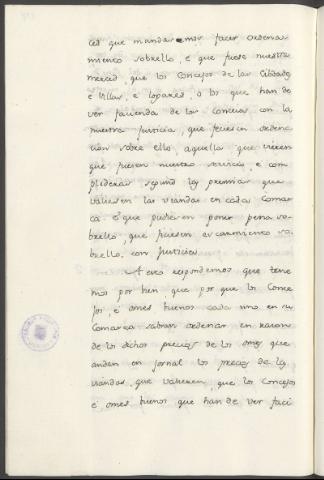 ces que mandasemos facer ordena
miento sobrello, e que fuese nuestra
merced, que los Concejos de las Cibdades
e Villas, e logares, o los que han de
ver facienda de los Concejos con la
nuestra Justicia, que ficiesen ordena
cion sobre ello, aquella que viesen
que fuesen nuestro servicio, e com
plideras segund los precios que
valiesen las viandas en cada Comar
ca e que pudiesen poner pena so-
brello, que fuesen escarmiento so-
brello, con Justicia.
A esto respondemos que tene
mos por bien que por que los Conce
jos, e omes buenos cada uno en su
Comarca sabran ordenar en razon
de los dichos precios de los omes que
anden en jornal los precios de las
viandas, que valieren, que los Concejos
e omes buenos que han de ver faci